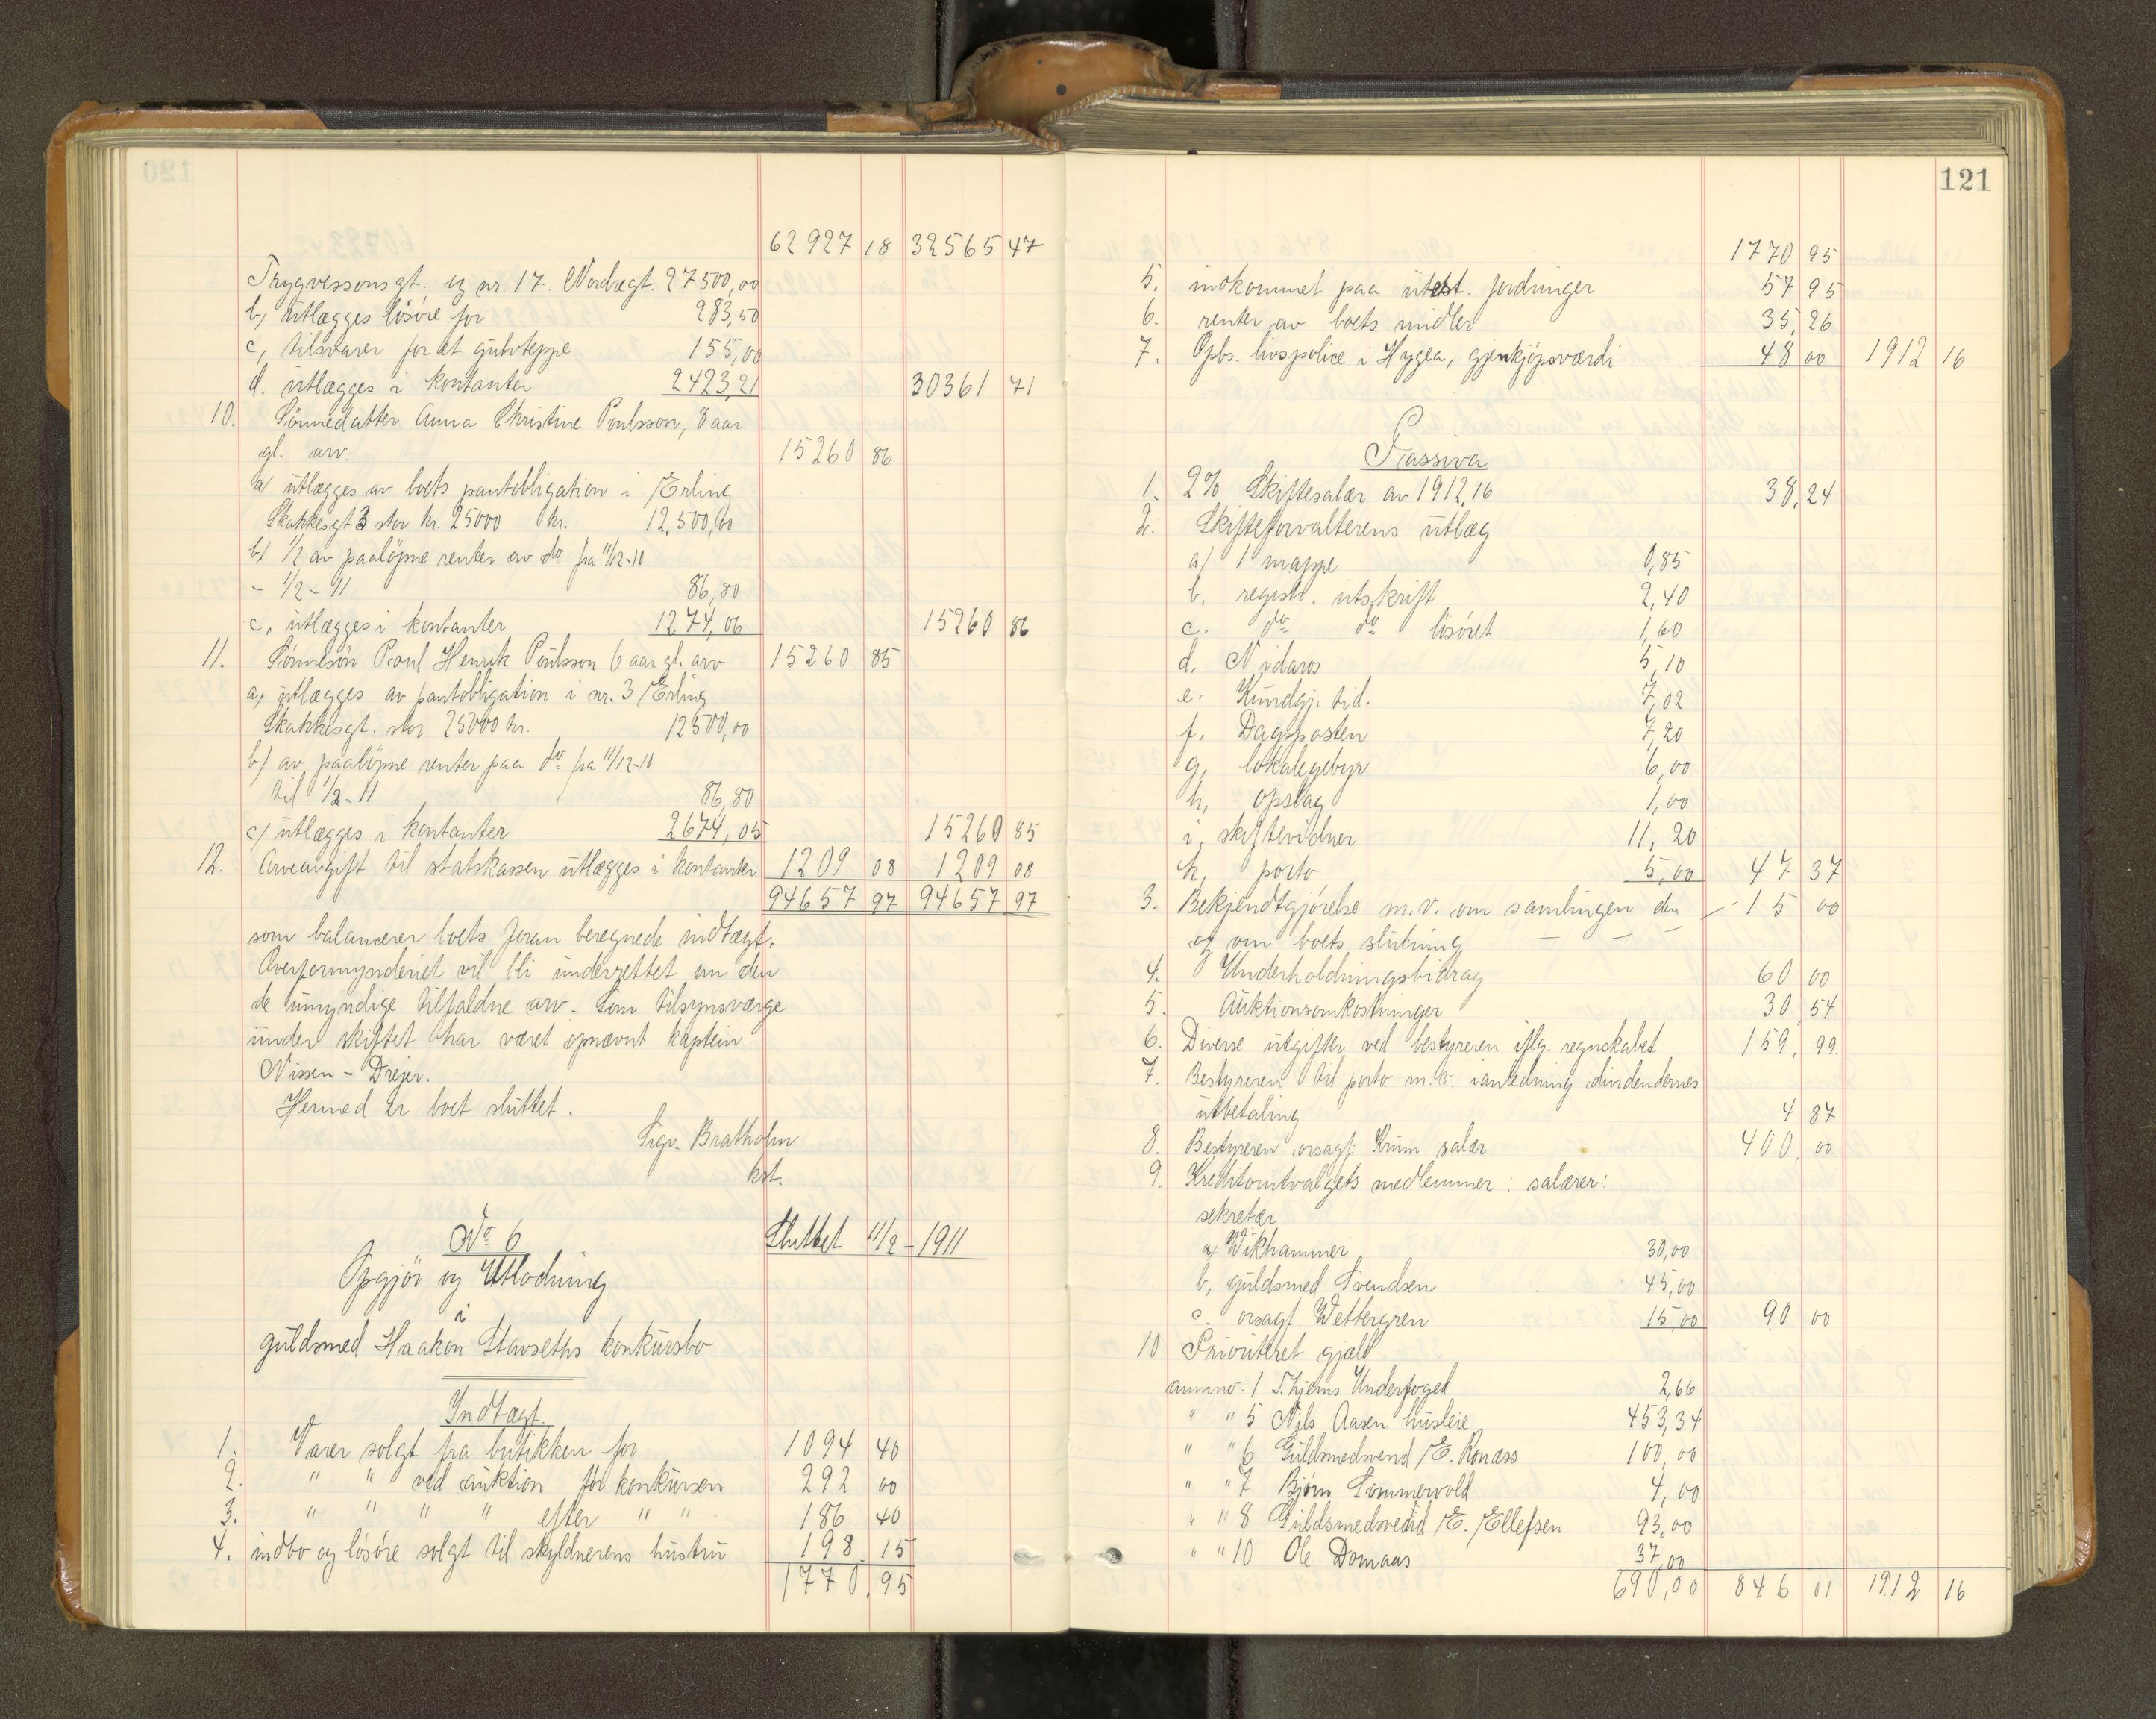 120
62927 18 32565 47
Trygvessonsgt. og nr. 17. Nordregt. 27500,00
b, utlægges lösöre for 283,50
c, tilsvarer for et gulvteppe 155,00
d. utlægges i kontanter 2423,21 30361 71
10. Sönnedatter Anna Christine Poulsson, 8 aar
gl. arv 15260 86
a/ utlægges av boets pantobligation i Erling
Skakkesgt 3 stor kr. 25000 kr. 12,500,00
b/ 1/2 av paalöpne renter av do fra 11/12-10
- 1/2-11 86,80
c, utlægges i kontanter 1274,06 15260 86
11. Sönnesön Poul Henrik Poulsson 6 aar gl. arv 15260 85
a, utlægges av pantobligation i nr. 3 Erling
Skakkesgt. stor 25000 kr. 12500,00
b) av paalöpne renter paa do fra 11/12-10
til 1/2-11 86,80
c) utlægges i kontanter 2674,05 15260 85
12. Arveavgift til statskassen utlægges i kontanter 1209 08 1209 08
94657 97 94657 97
som balancerer boets foran beregnede indtægt.
Overformynderiet vil bli underrettet om den
de umyndige tilfaldne arv. Som tilsynsværge
under skiftet har været opnævnt kaptein
Nissen - Drejer.
Hermed er boet sluttet.
Sigv. Bratholm
kst.
No 6 Sluttet 11/2-1911
Opgjör og Utlodning
i
guldsmed Haakon Stavseths konkursbo
Indtægt.
1. Varer solgt fra butikken for 1094 40
2. " " ved auktion för konkursen 292 00
3. " " " " efter " " 186 40
4. indbo og lösöre solgt til skyldnerens hustru 198 15
1770.95
121
1770 95
5. indkommet paa utest. fordringer 57 95
6. renter av boets midler 35,26
7. Opbs. livspolice i Hygea, gjenkjöpsværdi 48 00 1912 16
Passiva
1. 2% Skiftesalær av 1912,16 38,24
2. Skifteforvalterens utlæg
a) 1 mappe 0,85
b. registr. utskrift 2,40
c. do do lösöret 1,60
d. Nidaros 5,10
e. Kundgj. tid. 7,02
f. Dagsposten 7,20
g, lokalegebyr 6,00
h, opslag 1,00
i, skiftevidner 11,20
k, porto 5,00 47 37
3. Bekjendtgjörelse m.v. om samlingen den 15 00
og om boets slutning - - -
4. Underholdningsbidrag 60 00
5. Auktionsomkostninger 30 54
6. Diverse utgifter ved bestyreren iflg. regnskabet 159,99
7. Bestyreren til porto m.v. i anledning dividendernes
utbetaling 4 87
8. Bestyreren orsagf. Krum salær 400,00
9. Kreditorutvalgets medlemmer: salærer:
sekretær
a, Wikhammer 30,00
b, guldsmed Svendsen 45,00
c. orsagf. Wettergren 15,00 90 00
10 Prioriteret gjæld
anmno. 1 T.hjems Underfoged 2,66
" " 5 Nils Aasen husleie 453,34
" " 6 Guldsmedsvend E. Ronæss 100,00
" " 7 Bjørn Sommervold 4,00
" " 8 Guldsmedsvend E. Ellefsen 93,00
" " 10 Ole Domaas 37,00
690,00 846 01 1912 16